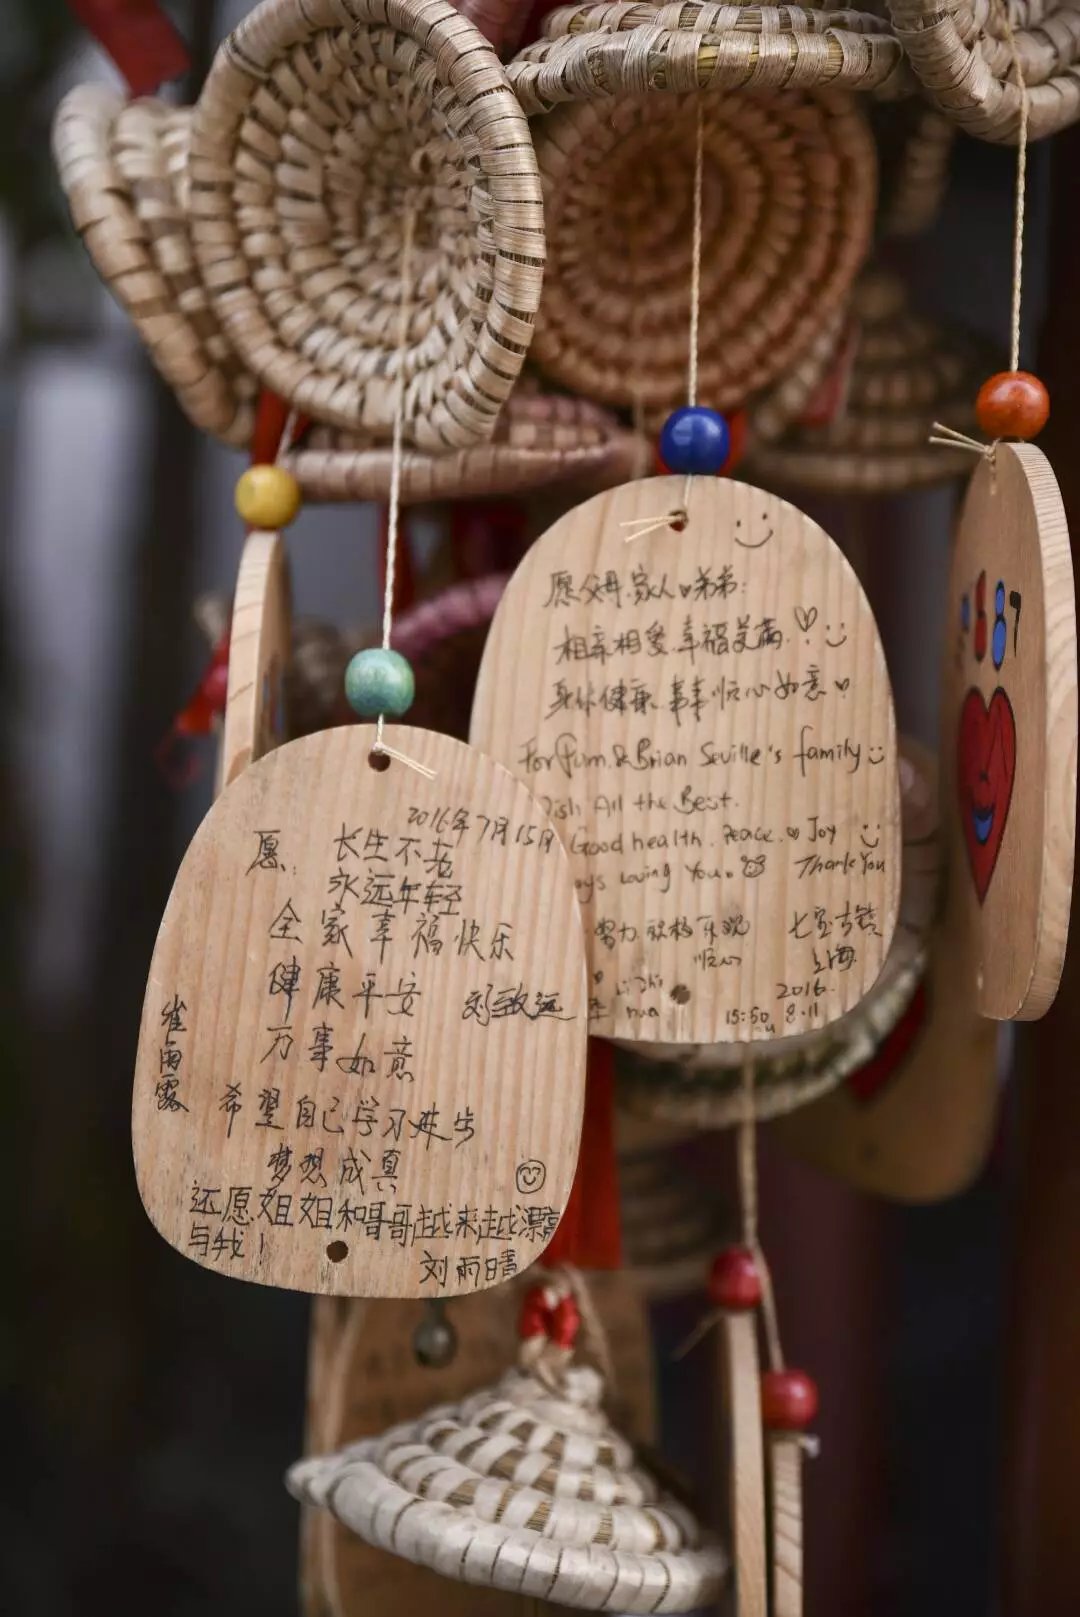 愿父母.家人♥弟弟:
相亲相爱.幸福美满.
身体健康.事事顺心如意♥
For Pum.&Brian Seville's family
ish All the Best.
Good health. Peace.♥ Joy
ys Loving You. Thank You
努力 乐观 七宝古镇
顺心 上海
Li Zhi 2016.
hua 15:50 8.11
2016年7月15日
愿: 长生不老
永远年轻
全家幸福快乐
健康平安 刘致远
万事如意
崔雨露
希望自己学习进步
梦想成真
还愿姐姐和哥哥越来越漂亮
与我!
刘雨晴